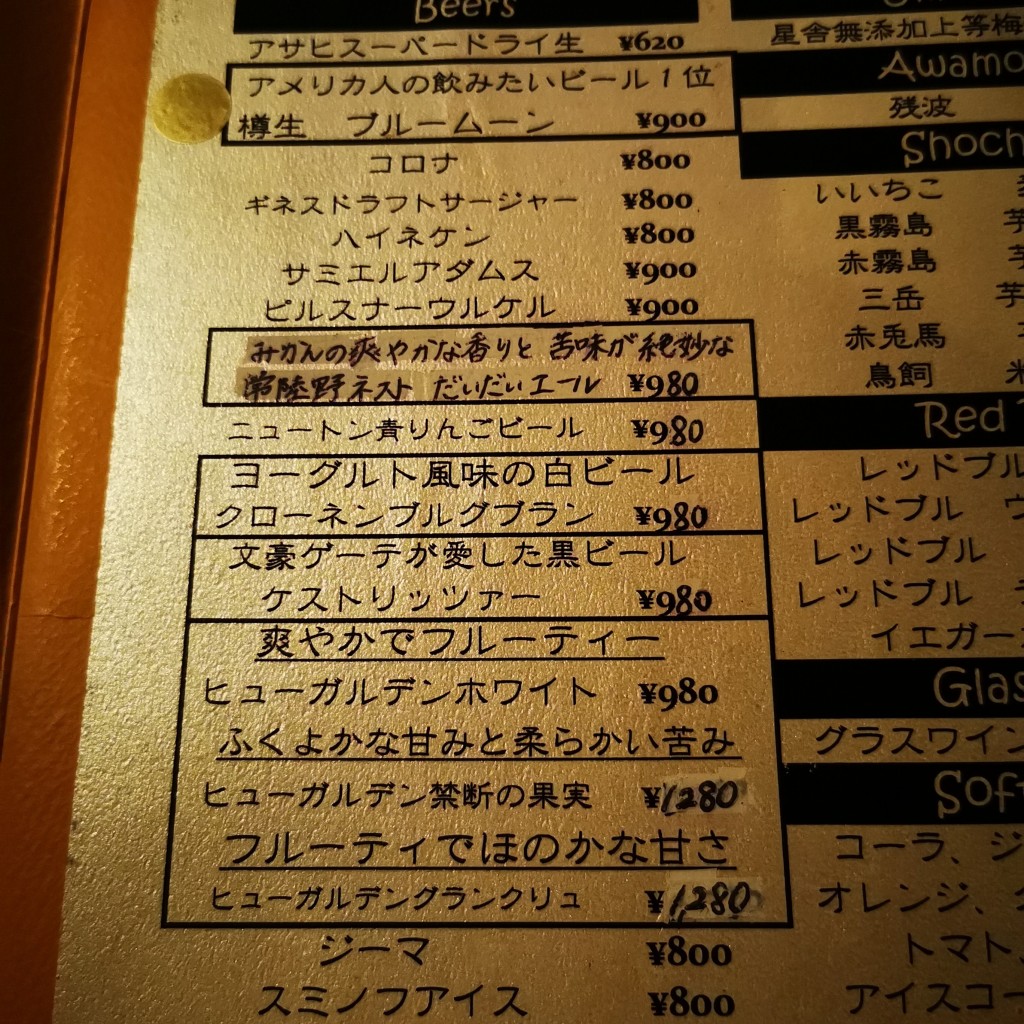 Beers
アサヒスーパードライ生 ¥620
アメリカ人の飲みたいビール1位
樽生 ブルームーン ¥900
コロナ ¥800
ギネスドラフトサージャー ¥800
ハイネケン ¥800
サミエルアダムス ¥900
ピルスナーウルケル ¥900
みかんの爽やかな香りと 苦味が絶妙な
常陸野ネスト だいだいエール ¥980
ニュートン青りんごビール ¥980
ヨーグルト風味の白ビール
クローネンブルグブラン ¥980
文豪ゲーテが愛した黒ビール
ケストリッツァー ¥980
爽やかでフルーティー
ヒューガルデンホワイト ¥980
ふくよかな甘みと柔らかい苦み
ヒューガルデン禁断の果実 ¥1,280
フルーティでほのかな甘さ
ヒューガルデングランクリュ ¥1,280
ジーマ ¥800
スミノフアイス ¥800
星舎無添加上等梅
Awamo
残波
Shoch
いいちこ
黒霧島 芋
赤霧島 芋
三岳 芋
赤兎馬
鳥飼 米
Red
レッドブル
レッドブル ウ
レッドブル
レッドブル
イエガー
Glas
グラスワイン
Sof
コーラ、ジ
オレンジ、
トマト、
アイスコー